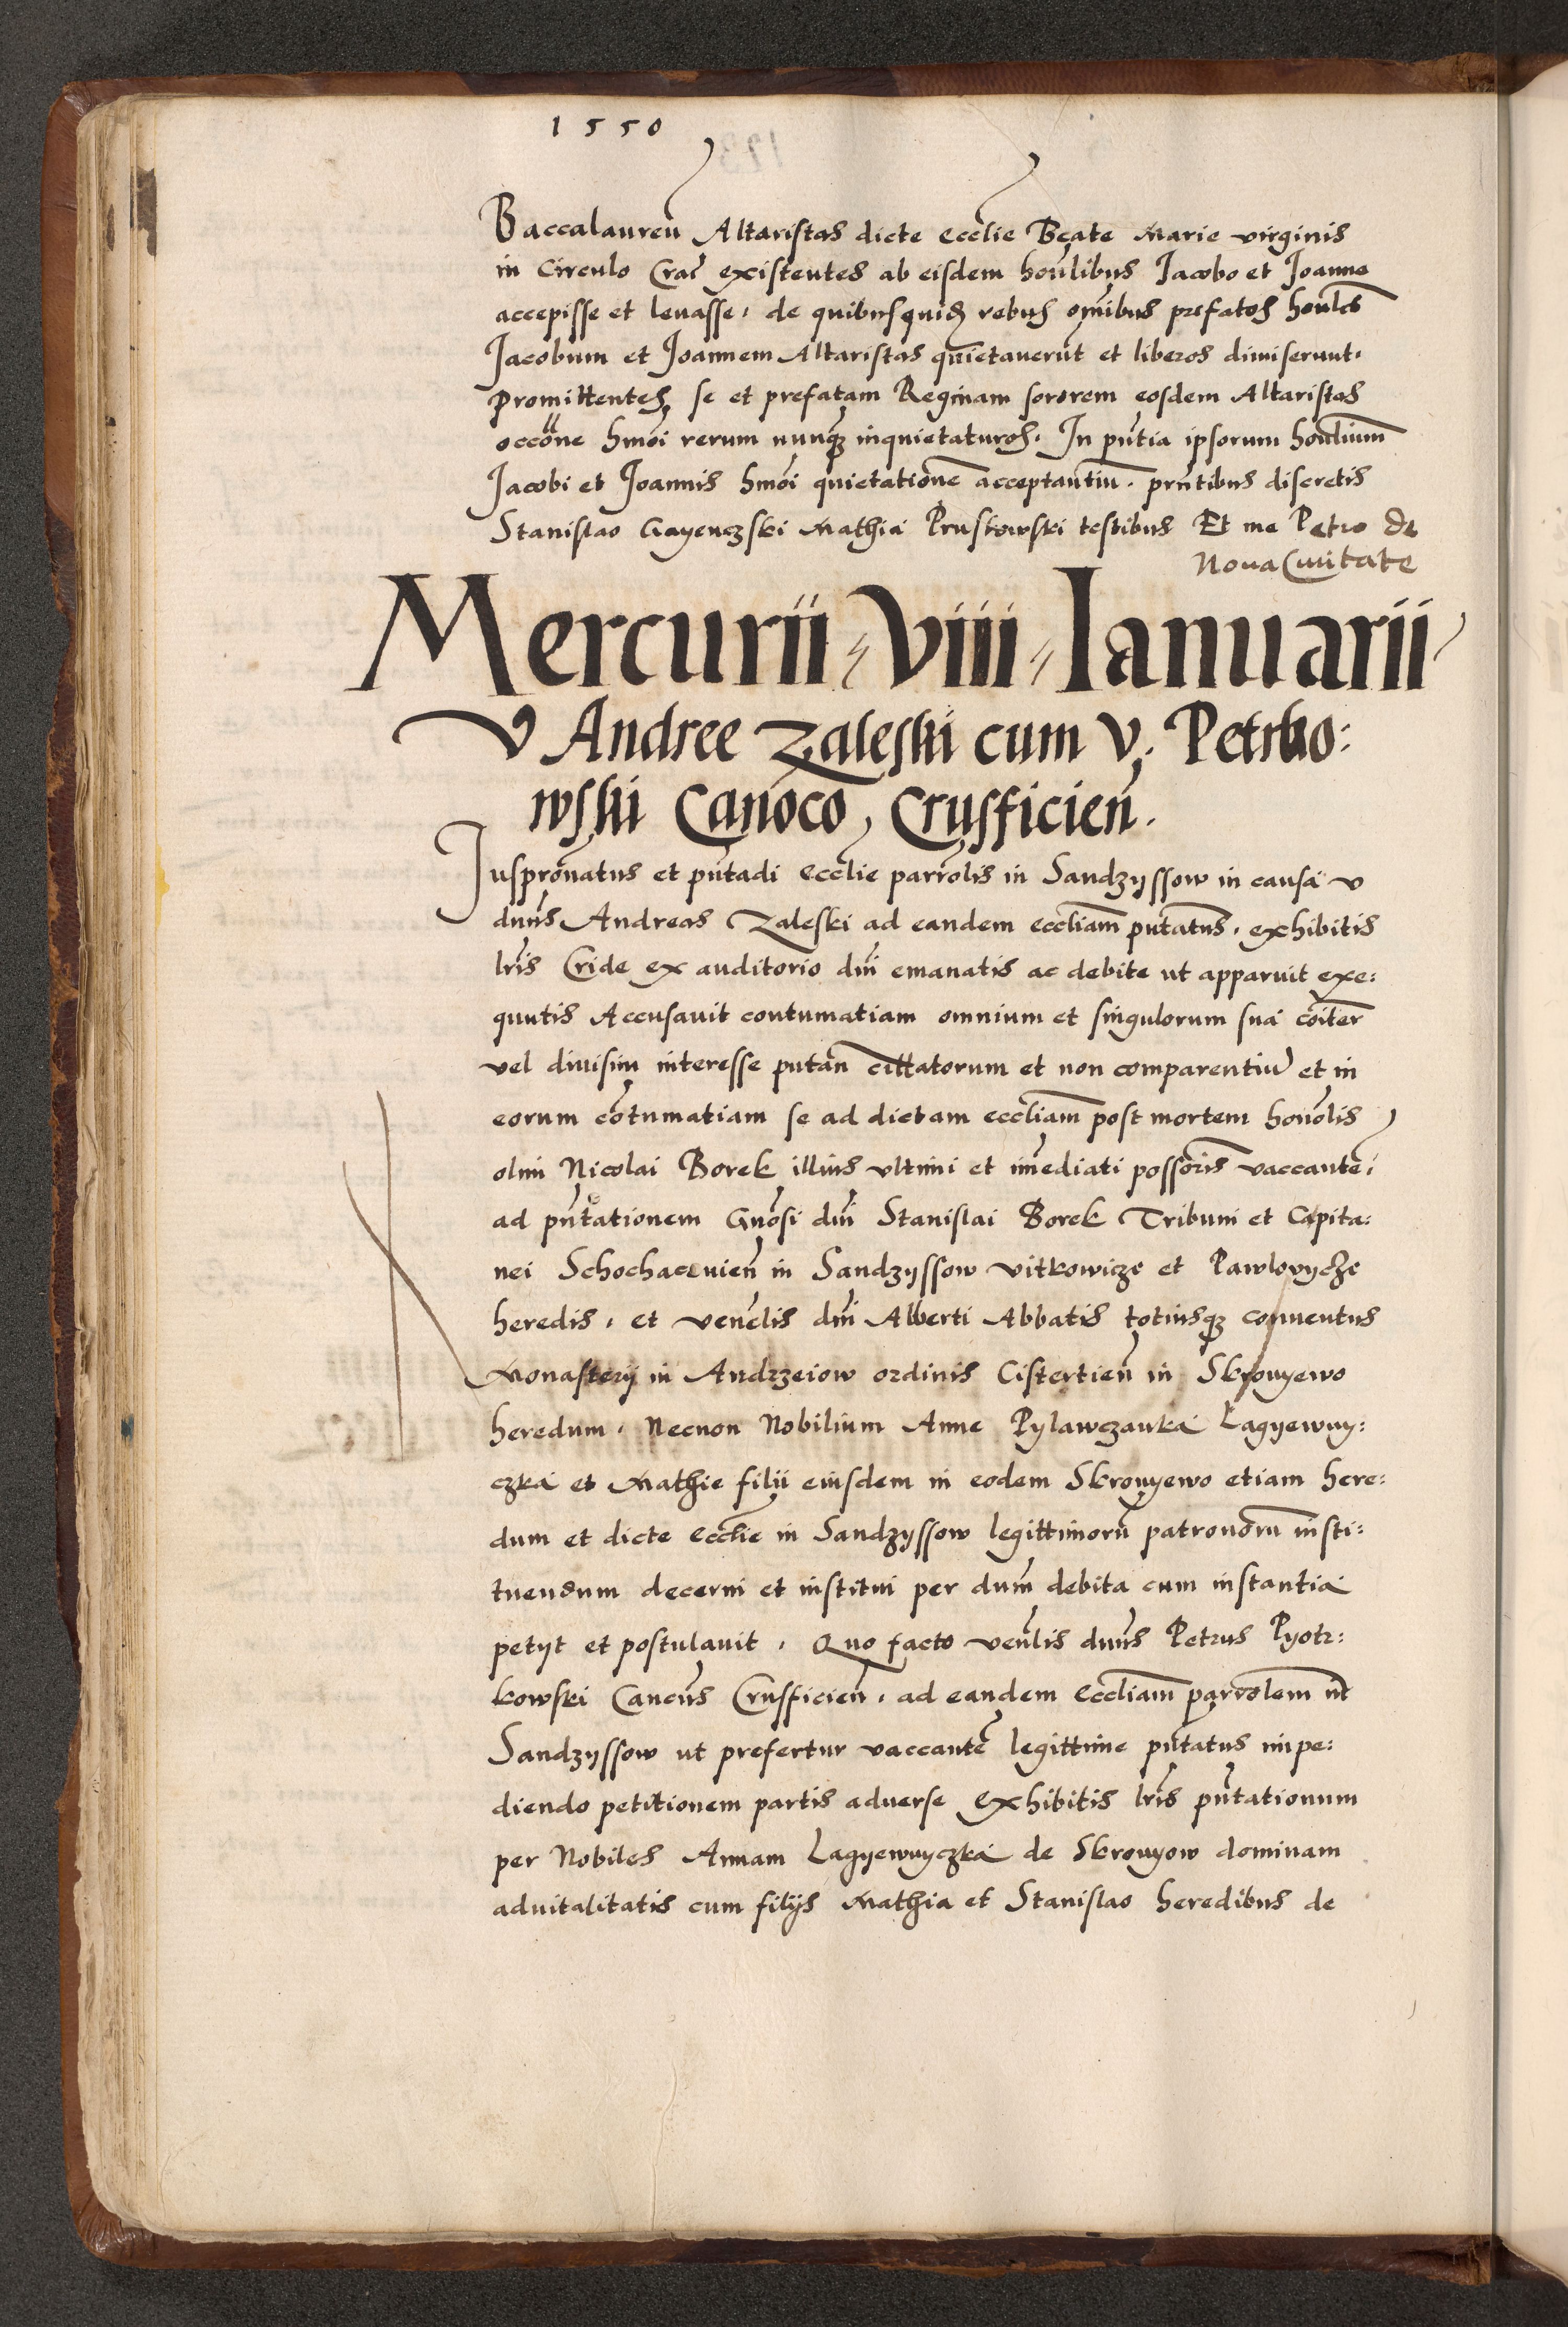 1550
Baccalaureū Altaristas dicte eccl̄ie Beate Marie virginis
in Circulo Crac̄ existentes ab eisdem honl̄ibus Jacobo et Joanne
accepisse et leuasse, de quibusquidꝫ rebus om̄ibus prefatos honl̄es
Jacobum et Joannem Altaristas quietauerūt et liberos dimiserunt.
promittentes se et prefatam Reginam sororem eosdem Altaristas
occōne hmōi rerum nunq̄ꝫ inquietaturos. In pn̄tia ipsorum honl̄ium
Jacobi et Joannis hmōi quietationē acceptantiū. prn̄tibus discretis
Stanislao Gayenczski Mathia Pruskowski testibus Et me Petro de
Noua Ciuitate
Mercurii viii Ianuarii
V Andree Zaleski cum V. Petrko:
wski Canōco, Crusficien̄.
Juspron̄atus et pn̄tadi eccl̄ie parrōlis in Sandzyssow in causa v
dn̄us Andreas Zaleski ad eandem eccl̄iam pn̄tatus, exhibitis
lr̄is Cride ex auditorio dn̄i emanatis ac debite ut apparuit exe:
quutis Accusauit contumatiam omnium et singulorum sua cōiter
vel diuisim interesse putan̄ cittatorum et non comparentiū et in
eorum cōtumatiam se ad dictam eccl̄iam post mortem honōlis
olim Nicolai Borek illius vltimi et im̄ediati possōris vaccantē,
ad pn̄tationem Gnōsi dn̄i Stanislai Borek Tribuni et Capita:
nei Schochaceuien̄ in Sandzyssow Vitkowicze et Pawlovycze
heredis, et venēlis dn̄i Alberti Abbatis totiusqꝫ conuentus
Monasterij in Andrzeiow ordinis Cistertien̄ in Skronyewo
heredum, Necnon Nobilium Anne Pylawczanka Lagyewny:
czka et Mathie filii eiusdem in eodem Skronyewo etiam here:
dum et dicte eccl̄ie in Sandzyssow legittimorū patronōrū insti:
tuendum decerni et institui per dn̄m debita cum instantia
petijt et postulauit. Quo facto venl̄is dn̄us Petrus Pyotr:
kowski Cancūs Crusficien̄, ad eandem eccl̄iam parrōlem in
Sandzyssow ut prefertur vaccantē legittime pn̄tatus impe:
diendo petitionem partis aduerse exhibitis lr̄is pn̄tationum
per Nobiles Annam Lagyewnyczka de Skronyow dominam
aduitalitatis cum filijs Mathia et Stanislao heredibus de